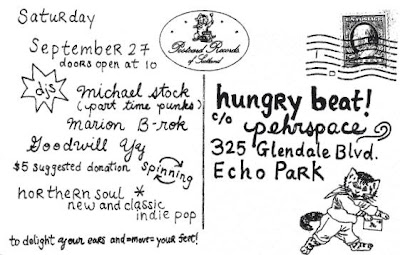 Saturday
September 27
doors open at 10
djs
michael stock
(part time punks)
marion B-rok
Goodwill Yay
$5 suggested donation
spinning
northern soul *
new and classic
indie pop
to delight your ears and =move= your feet!
Postcard Records
of Scotland
hungry beat!
c/o pehrspace
325 Glendale Blvd.
Echo Park